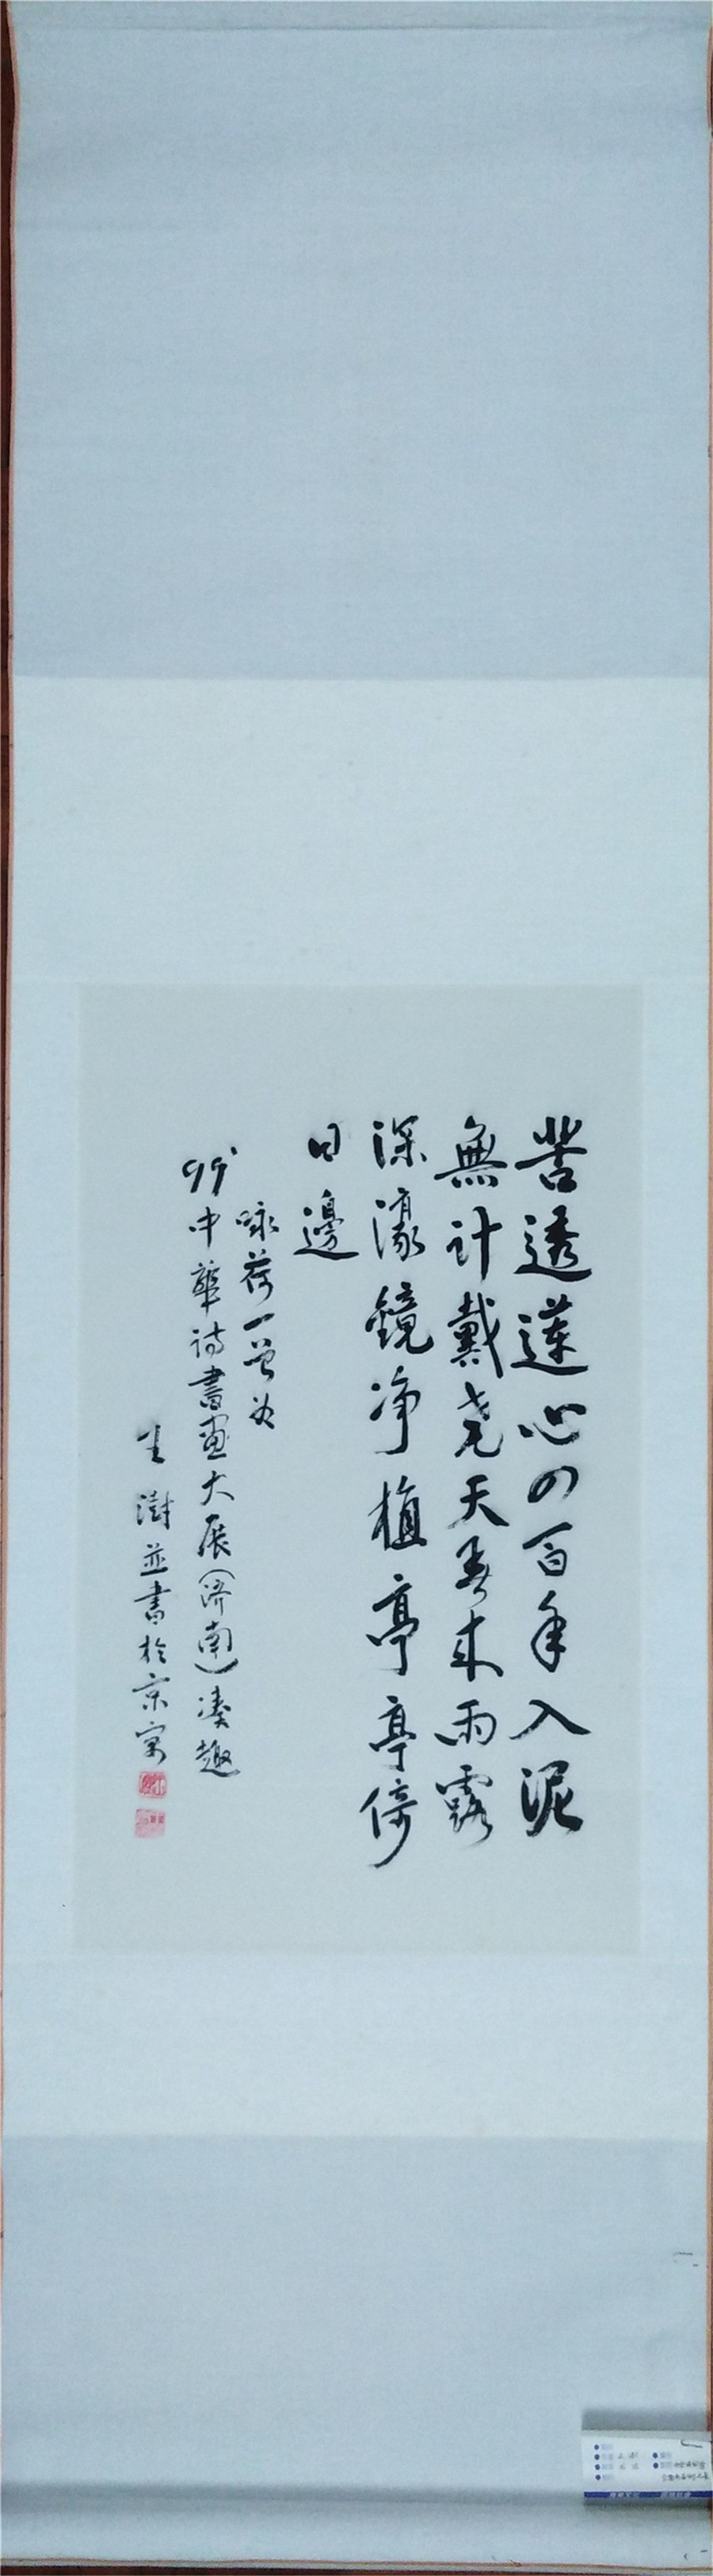 苦透蓮心四百年入泥
無計戴尧天春来雨露
深濠鏡净植亭亭倚
日邊
咏荷一首为
99'中華诗書画大展(济南)凑趣
王澍並書於京寓